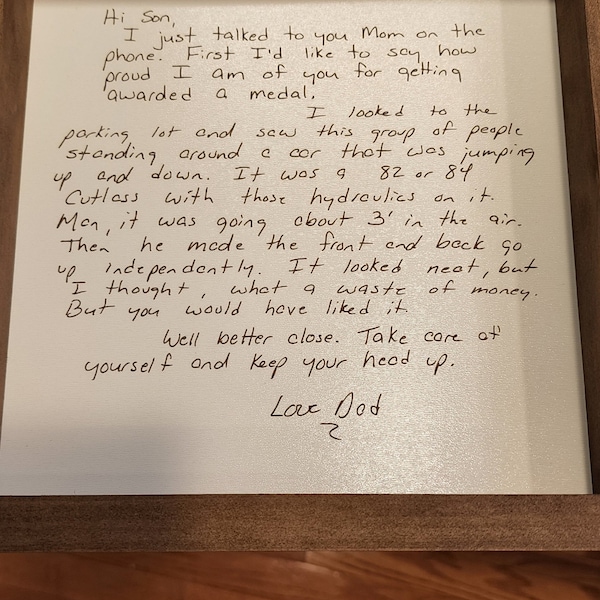 Hi Son,
I just talked to you Mom on the
phone. First I'd like to say how
proud I am of you for getting
awarded a medal.
I looked to the
parking lot and saw this group of people
standing around a car that was jumping
up and down. It was a 82 or 84
Cutlass with those hydraulics on it.
Man, it was going about 3' in the air.
Then he made the front and back go
up independently. It looked neat, but
I thought, what a waste of money.
But you would have liked it.
Well better close. Take care of
yourself and keep your head up.
Love Dad